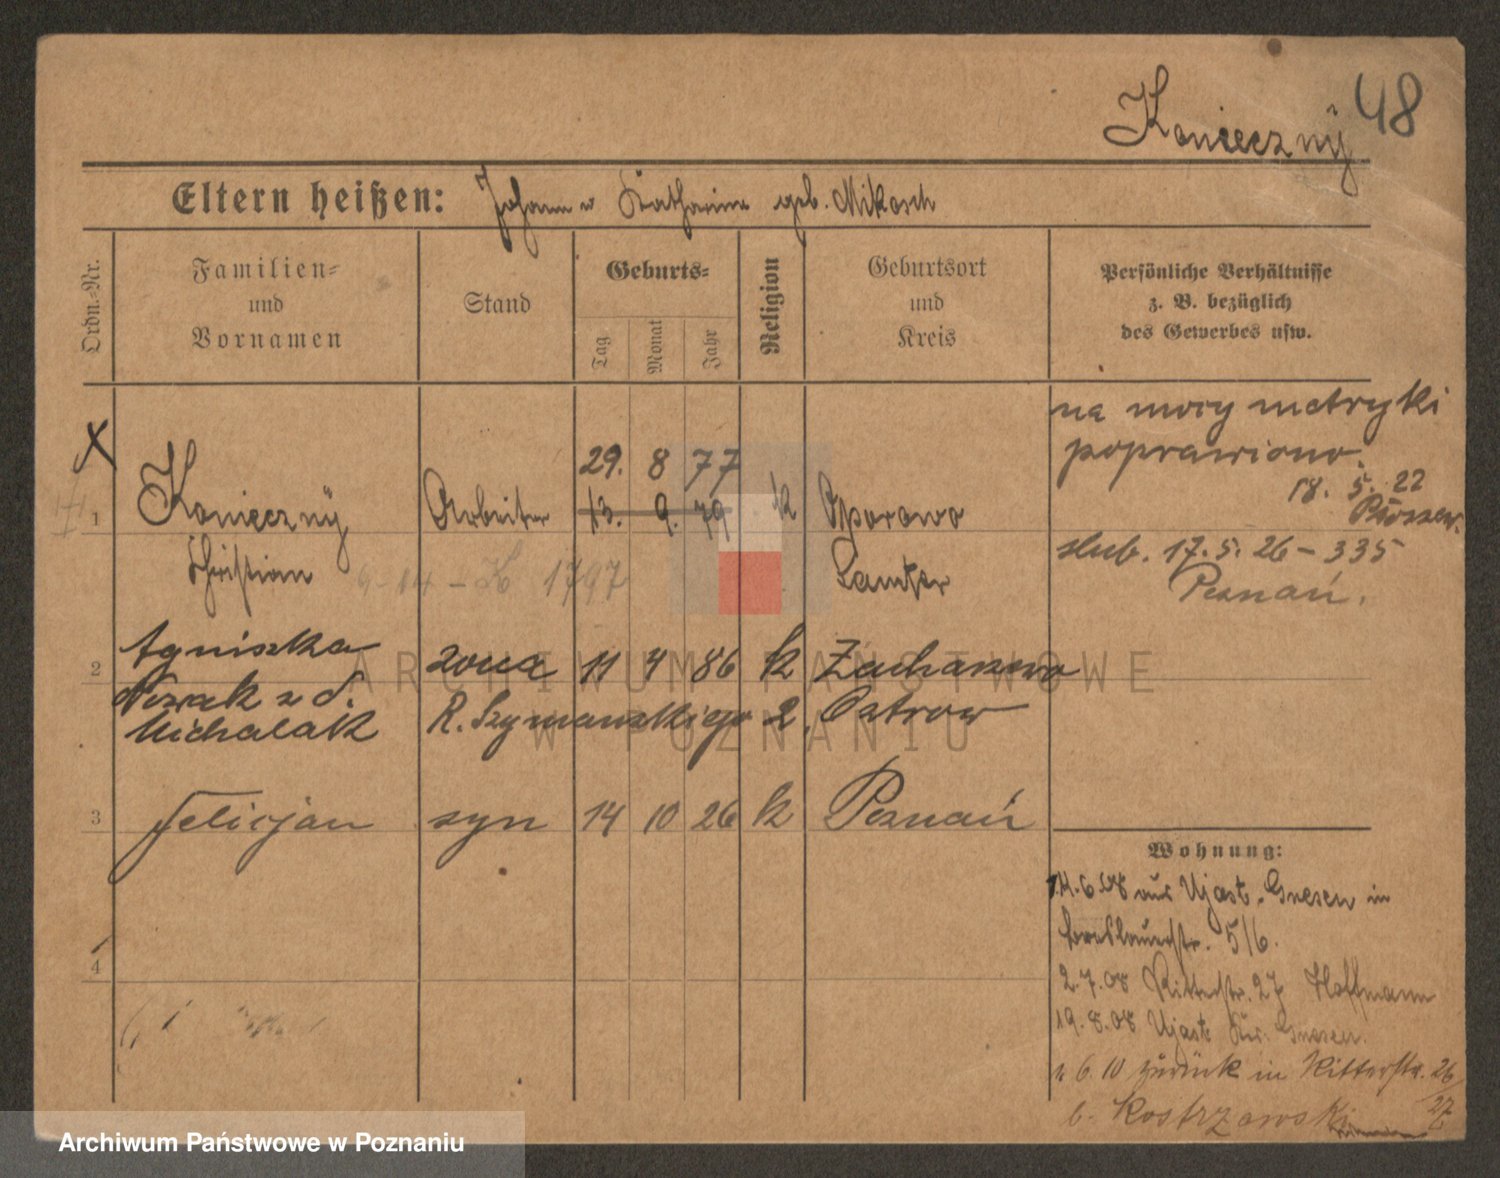 48
Konieczny
Eltern heißen: Johann u Katharina geb. Mikosch
Ordn.-Nr.
Familien-
und
Vornamen
Stand
Geburts-
Tag
Monat
Jahr
Religion
Geburtsort
und
Kreis
Persönliche Verhältnisse
z. B. bezüglich
des Gewerbes usw.
na mocy metryki
poprawiono.
18. 5. 22
X
29. 8 77
1 Konieczny Arbeiter 13. 9. 79 k Oporowo
Christian 9-14 - K 1797 Samter
slub. 17. 5. 26 - 335
Poznań.
2 Agnieszka żona 11 4 86 k Zacharzewo
Nowak z d. R. Szymańskiego 2, Ostrow
Michalak
3 Felicjan syn 14 10 26 k Poznań
4
Wohnung:
14.6.08 aus Ujast. Gnesen in
Breslauerstr. 5/6.
2.7.08 Ritterstr. 27 Hoffmann
19.8.08 Ujast Kr. Gnesen.
6.10 zurück in Ritterstr. 26/27
b. Kostrzewski
ARCHIWUM PAŃSTWOWE
W POZNANIU
Archiwum Państwowe w Poznaniu